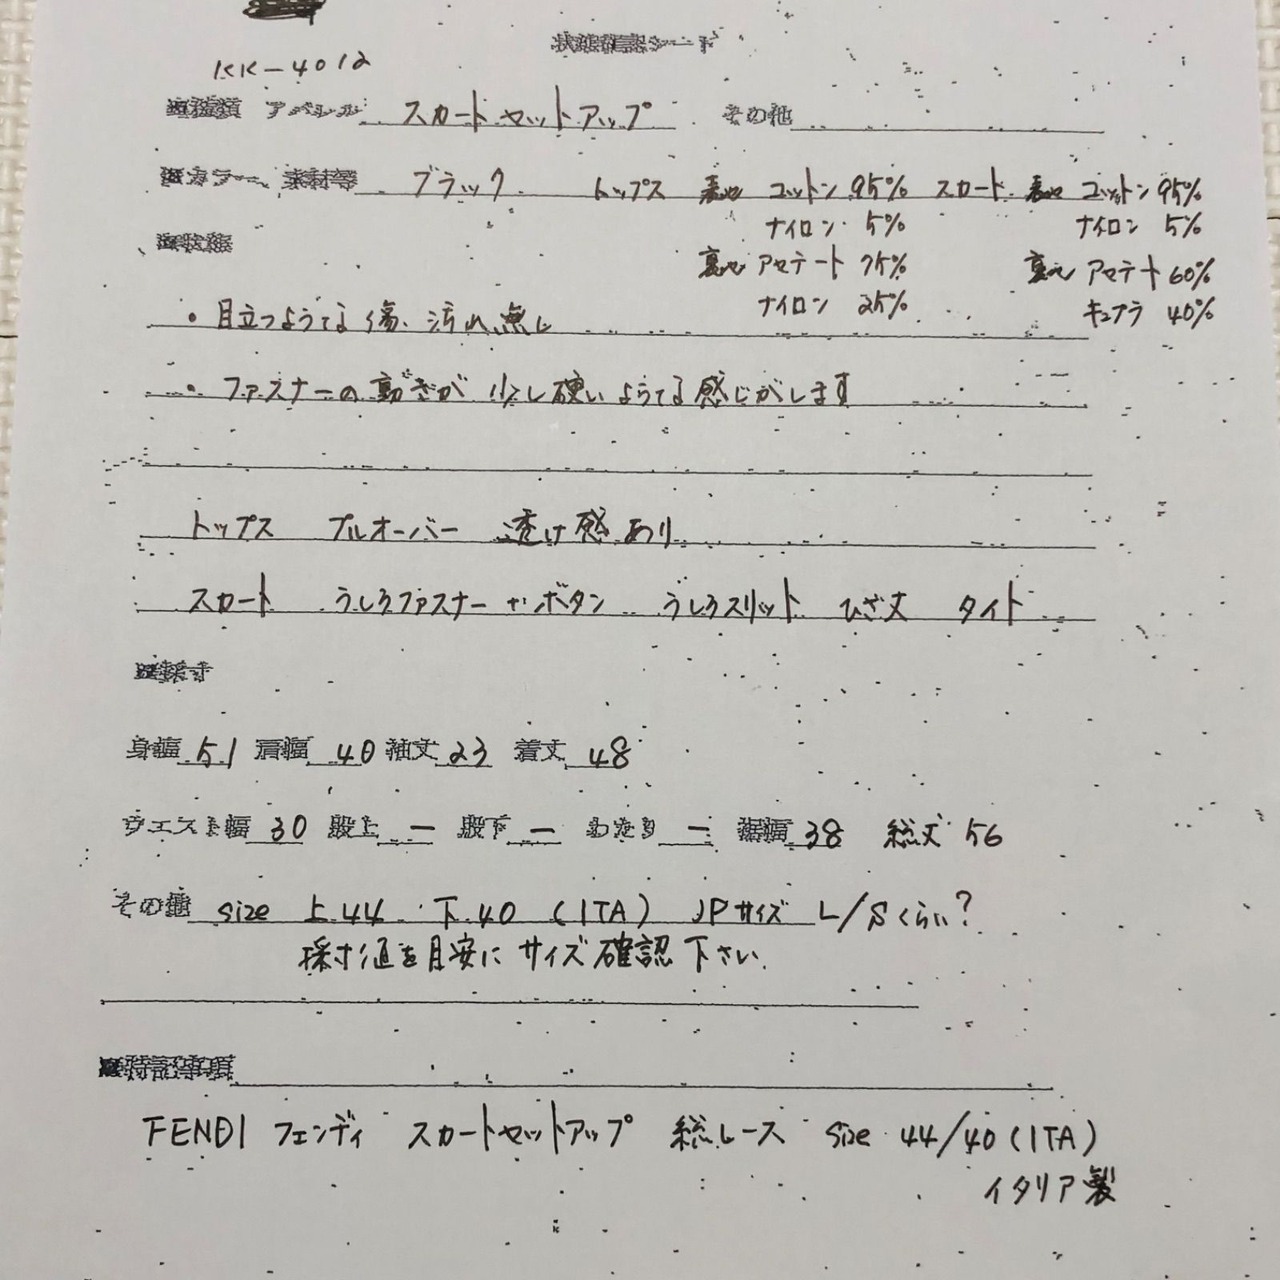 状態確認シート
KK-4012
■種類 アパレル スカートセットアップ その他
■カラー、素材等 ブラック トップス 表地 コットン 95% スカート 表地 コットン 95%
ナイロン 5% ナイロン 5%
■状態
裏地 アセテート 75% 裏地 アセテート 60%
ナイロン 25% キュプラ 40%
・目立つような傷、汚れ無し
・ファスナーの動きが少し硬いような感じがします
トップス プルオーバー 透け感あり
スカート うしろファスナー+ボタン うしろスリット ひざ丈 タイト
■採寸
身幅 51 肩幅 40 袖丈 23 着丈 48
ウエスト幅 30 股上 ー 股下 ー わたり ー 裾幅 38 総丈 56
その他 size 上44 下40 (ITA) JPサイズ L/Sくらい?
採寸値を目安にサイズ確認下さい.
■特記事項
FENDI フェンディ スカートセットアップ 総レース size 44/40(ITA)
イタリア製